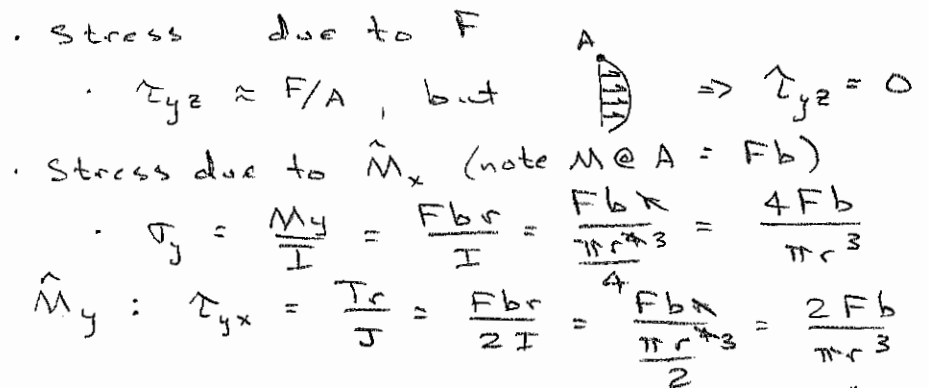 · Stress due to F
A
· τyz ≈ F/A, but => τyz = 0
· Stress due to M̂x (note M @ A = Fb)
· σy = My/I = Fbr/I = Fbr/(πr⁴³/4) = 4Fb/πr³
M̂y : τyx = Tr/J = Fbr/2I = Fbr/(πr⁴³/2) = 2Fb/πr³